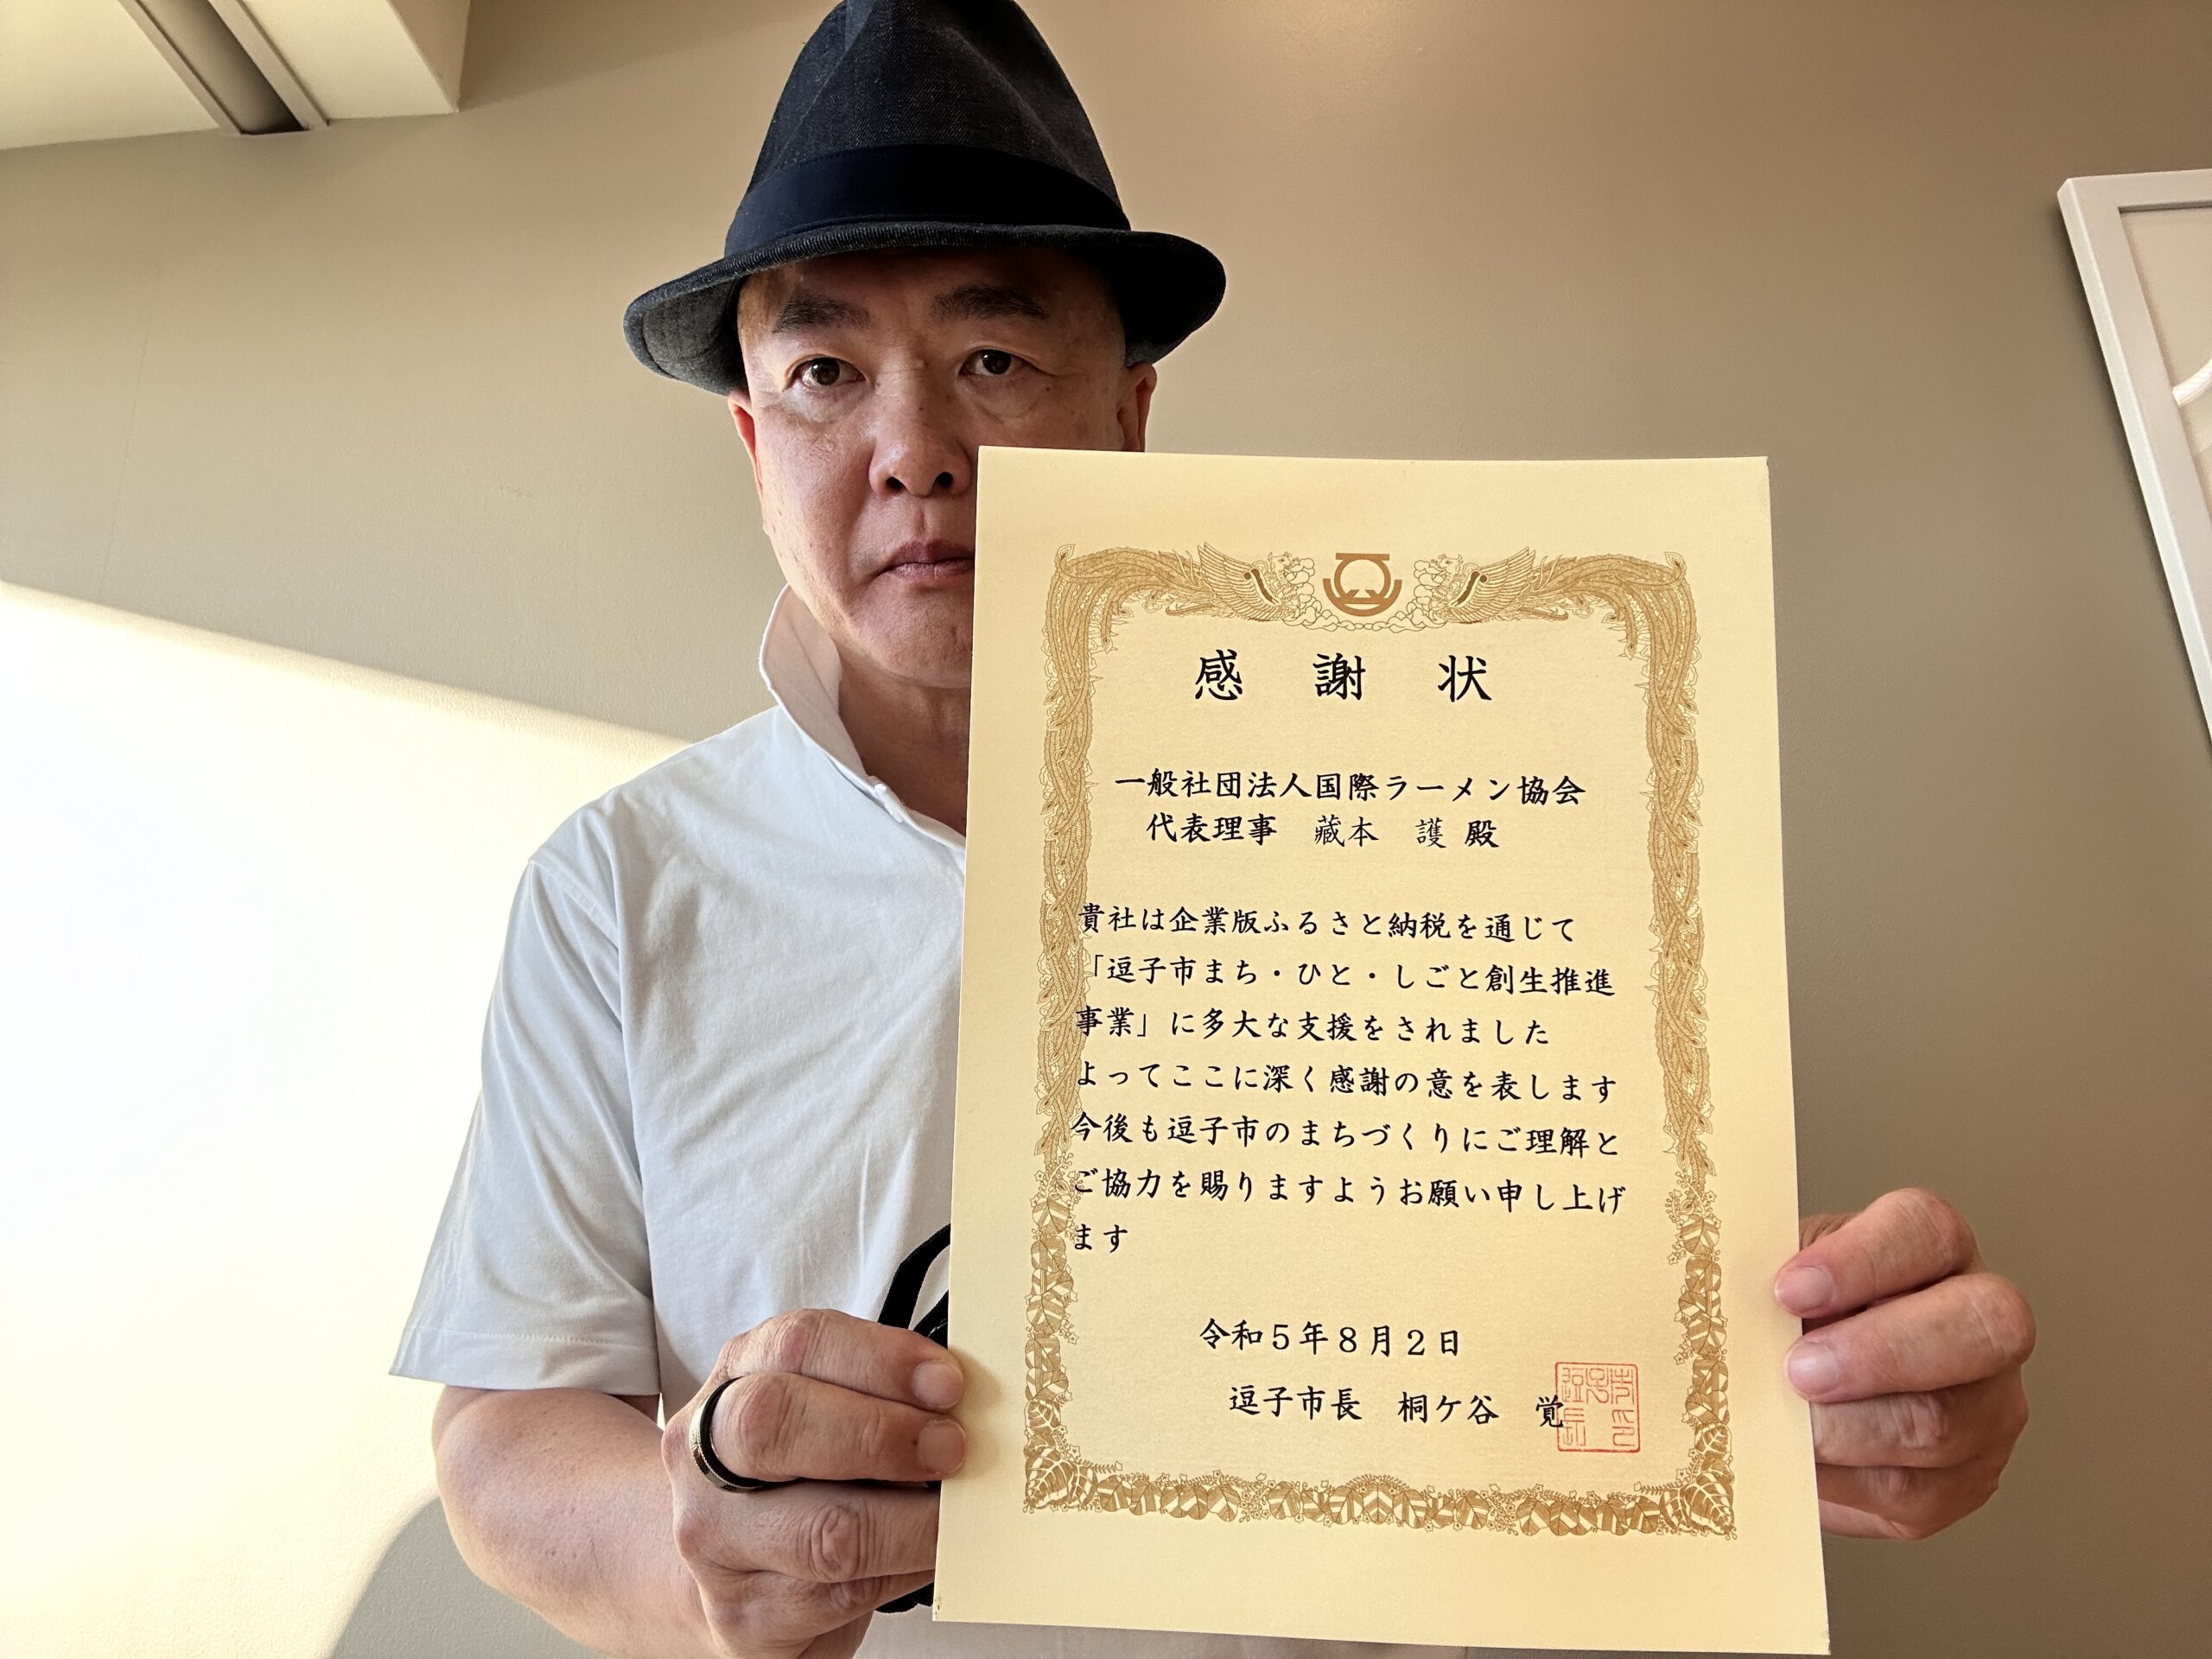 感謝状
一般社団法人国際ラーメン協会
代表理事　藏本　護 殿
貴社は企業版ふるさと納税を通じて
「逗子市まち・ひと・しごと創生推進
事業」に多大な支援をされました
よってここに深く感謝の意を表します
今後も逗子市のまちづくりにご理解と
ご協力を賜りますようお願い申し上げ
ます
令和５年８月２日
逗子市長　桐ケ谷　覚